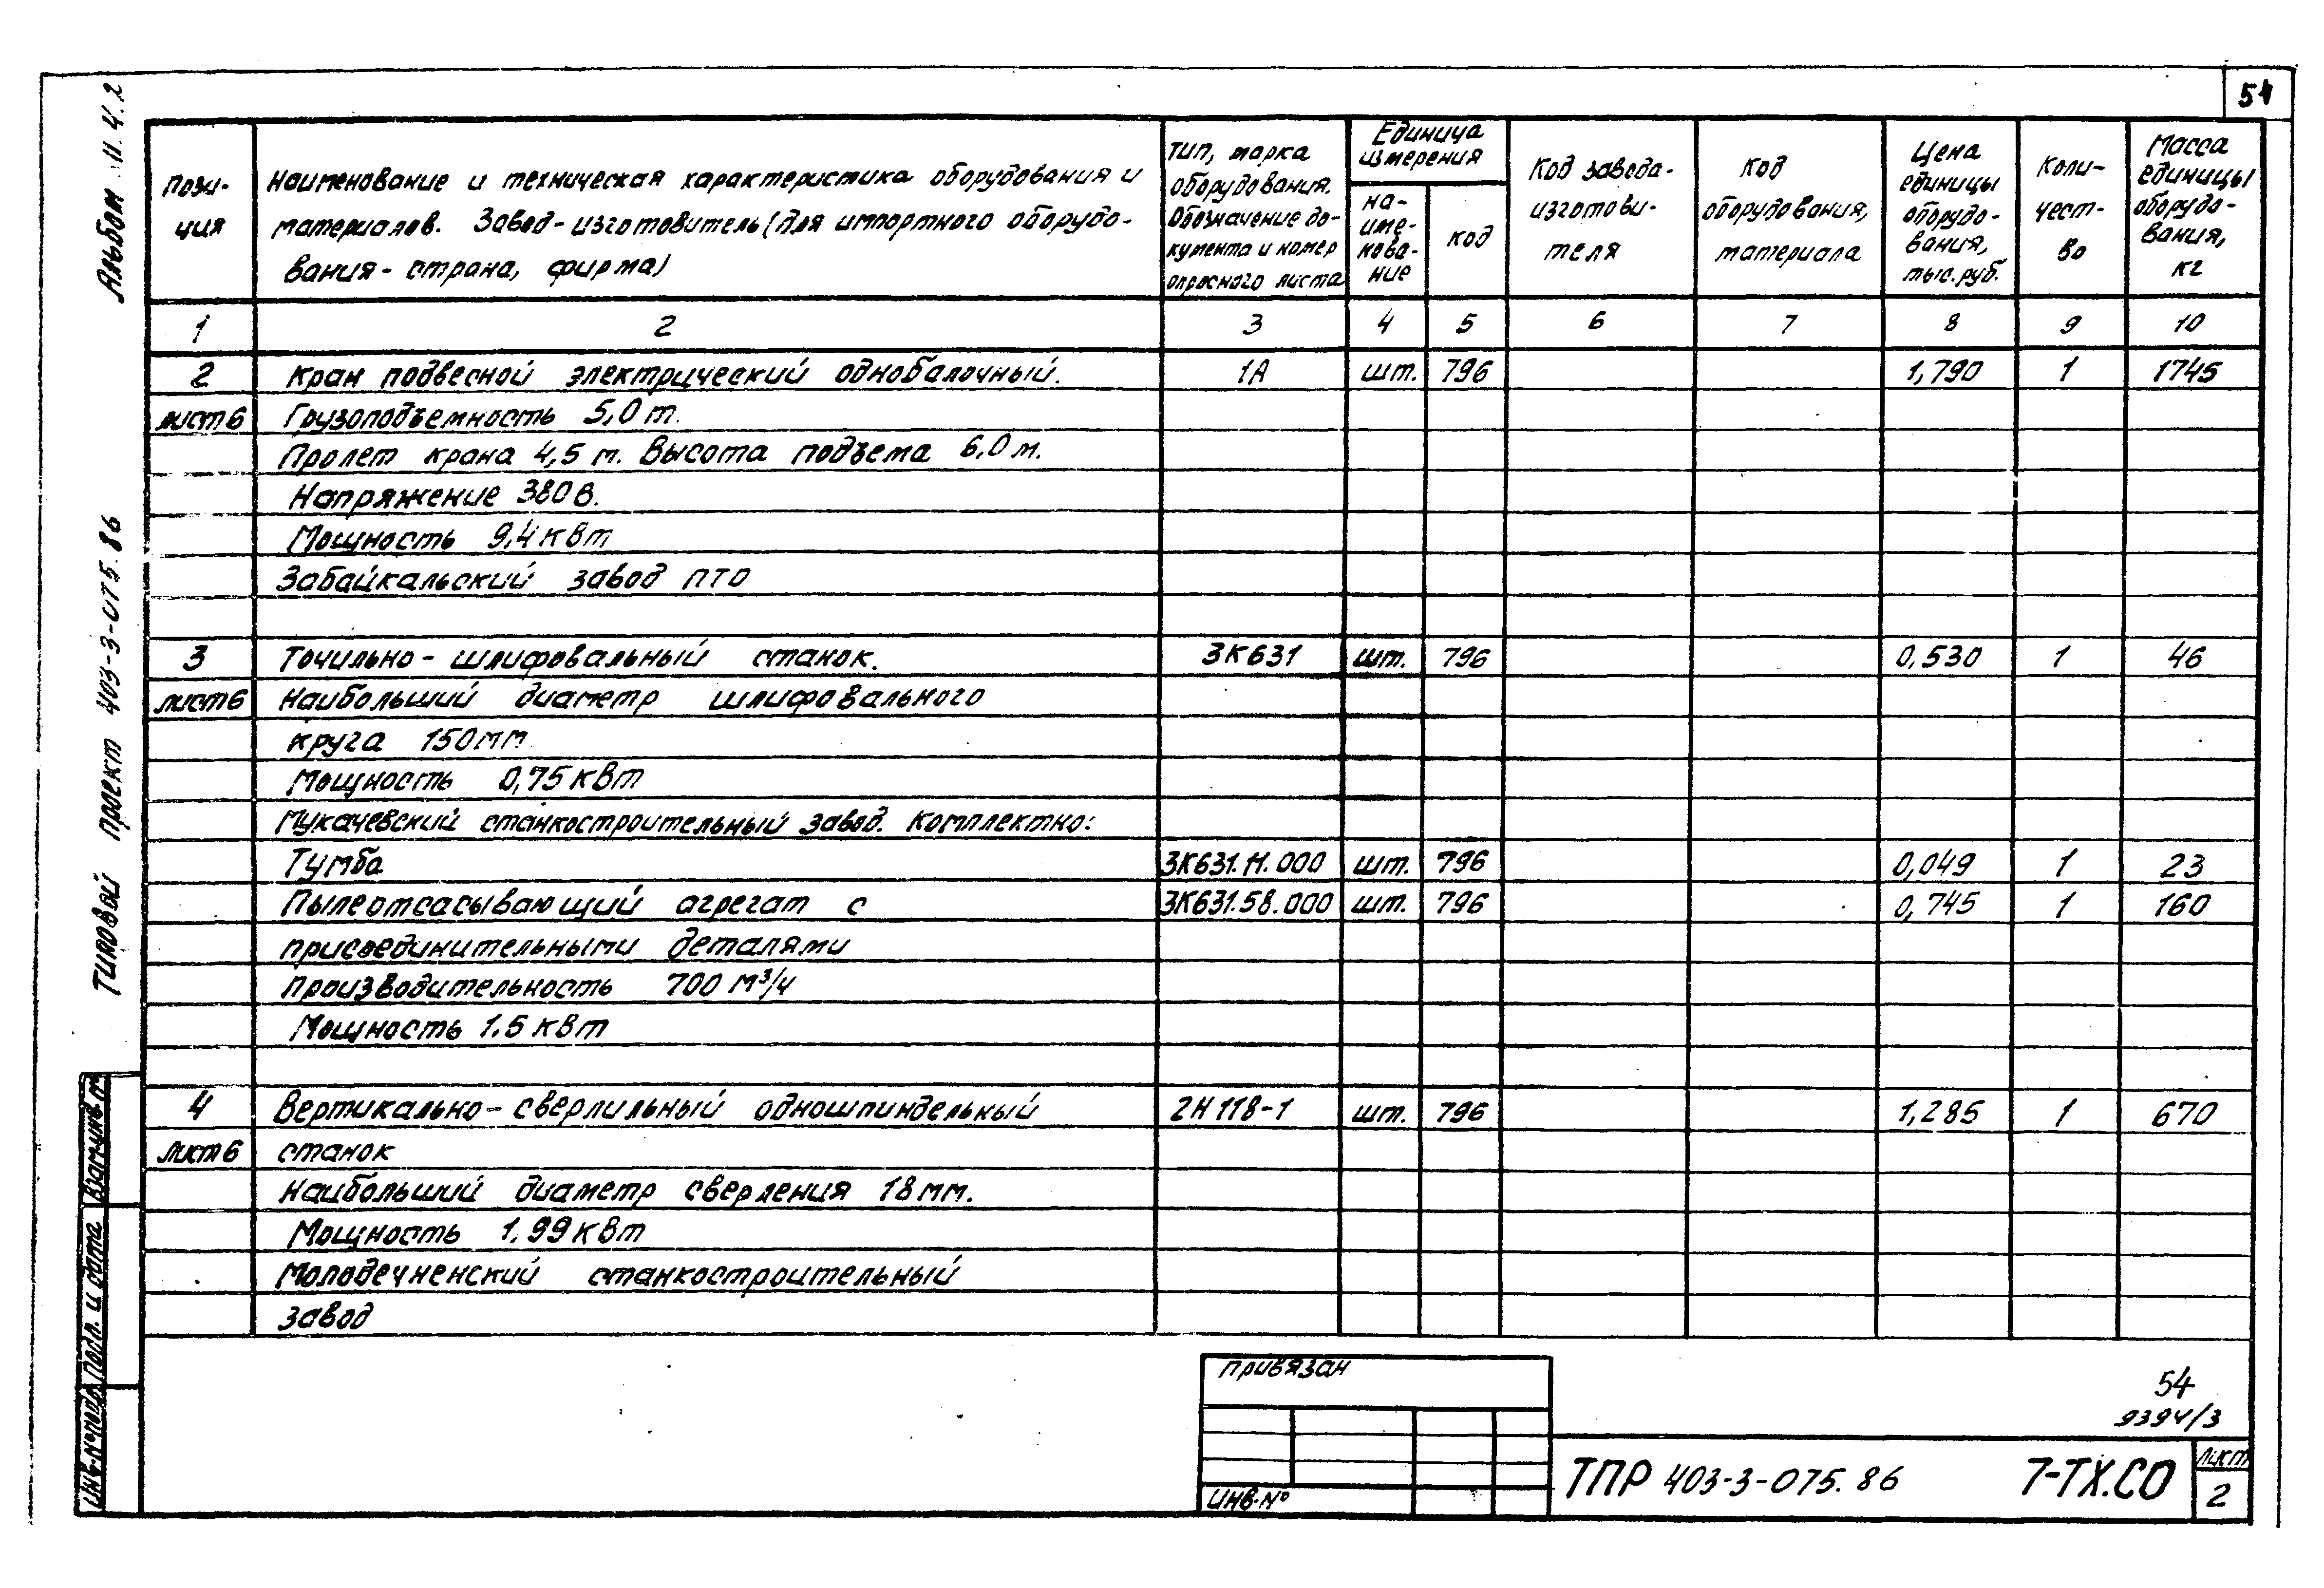 54
Альбом II.Ч.2
Типовой проект 403-3-075.86
Пози-
ция
Наименование и техническая характеристика оборудования и
материалов. Завод-изготовитель (для импортного оборудо-
вания - страна, фирма)
Тип, марка
оборудования.
Обозначение до-
кумента и номер
опросного листа
Единица
измерения
на-
име-
нова-
ние
код
Код завода-
изготови-
теля
Код
оборудования,
материала
Цена
единицы
оборудо-
вания,
тыс.руб.
Коли-
чест-
во
Масса
единицы
оборудо-
вания,
кг
1 2 3 4 5 6 7 8 9 10
2 Кран подвесной электрический однобалочный. 1А шт. 796 1,790 1 1745
лист 6 Грузоподъемность 5,0 т.
Пролет крана 4,5 м. Высота подъема 6,0 м.
Напряжение 380 В.
Мощность 9,4 кВт
Забайкальский завод ПТО
3 Точильно-шлифовальный станок. 3К631 шт. 796 0,530 1 46
лист 6 Наибольший диаметр шлифовального
круга 150 мм
Мощность 0,75 кВт
Мукачевский станкостроительный завод. Комплектно:
Тумба 3К631.11.000 шт. 796 0,049 1 23
Пылеотсасывающий агрегат с 3К631.58.000 шт. 796 0,745 1 160
присоединительными деталями
Производительность 700 м³/ч
Мощность 1.5 кВт
4 Вертикально-сверлильный одношпиндельный 2Н118-1 шт. 796 1,285 1 670
лист 6 станок
Наибольший диаметр сверления 18 мм.
Мощность 1,99 кВт
Молодечненский станкостроительный
завод
Взам.инв.№
Подл. и дата
Инв.№ подл.
Привязан
Инв.№
54
9394/3
ТПР 403-3-075.86 7-ТХ.СО
Лист
2